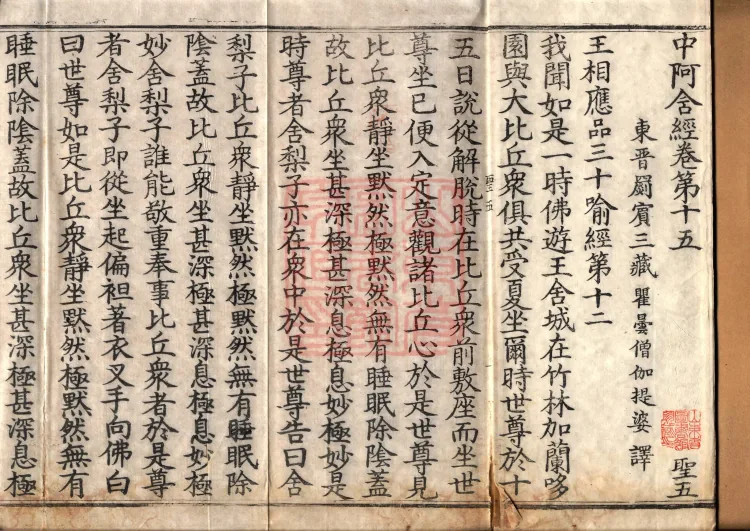 中阿含經卷第十五 聖五
東晉罽賓三藏瞿曇僧伽提婆譯
王相應品三十喻經第十二
我聞如是一時佛遊王舍城在竹林加蘭哆
園與大比丘衆俱共受夏坐爾時世尊於十
五日說從解脫時在比丘衆前敷座而坐世
尊坐已便入定意觀諸比丘心於是世尊見
比丘衆靜坐默然極默然無有睡眠除陰蓋
故比丘衆坐甚深極甚深息極息妙極妙是
時尊者舍梨子亦在衆中於是世尊告曰舍
梨子比丘衆靜坐默然極默然無有睡眠除
陰蓋故比丘衆坐甚深極甚深息極息妙極
妙舍梨子誰能敬重奉事比丘衆者於是尊
者舍梨子即從坐起偏袒著衣叉手向佛白
曰世尊如是比丘衆靜坐默然極默然無有
睡眠除陰蓋故比丘衆坐甚深極甚深息極